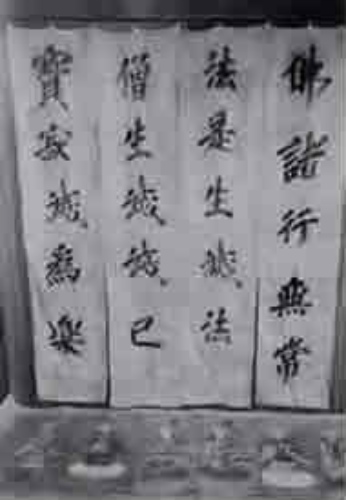 佛諸行無常
法是生滅法
僧生滅滅已
寳寂滅為樂